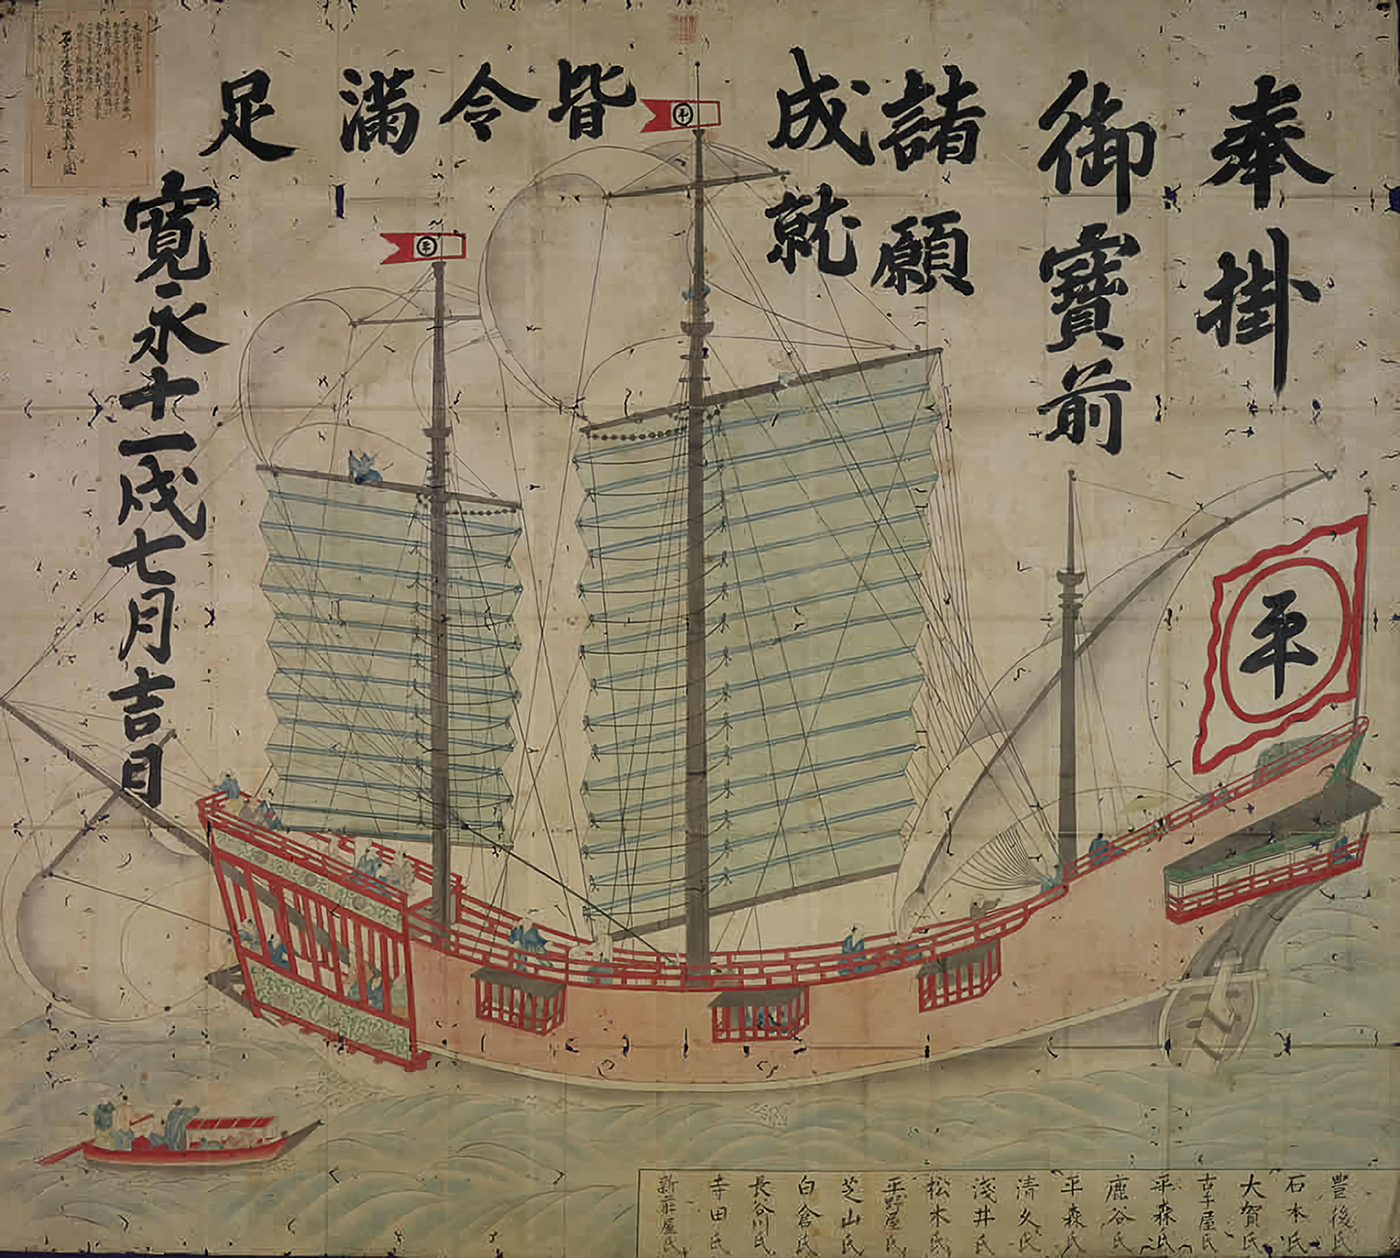 奉掛
御寶前
諸願
成就
皆令滿足
寛永十一戌七月吉日
平
平
平
豊後氏
石本氏
大賀氏
古手屋氏
平森氏
鹿谷氏
平森氏
清久氏
淺井氏
松木氏
平野屋氏
芝山氏
白倉氏
長谷川氏
寺田氏
新庄屋氏